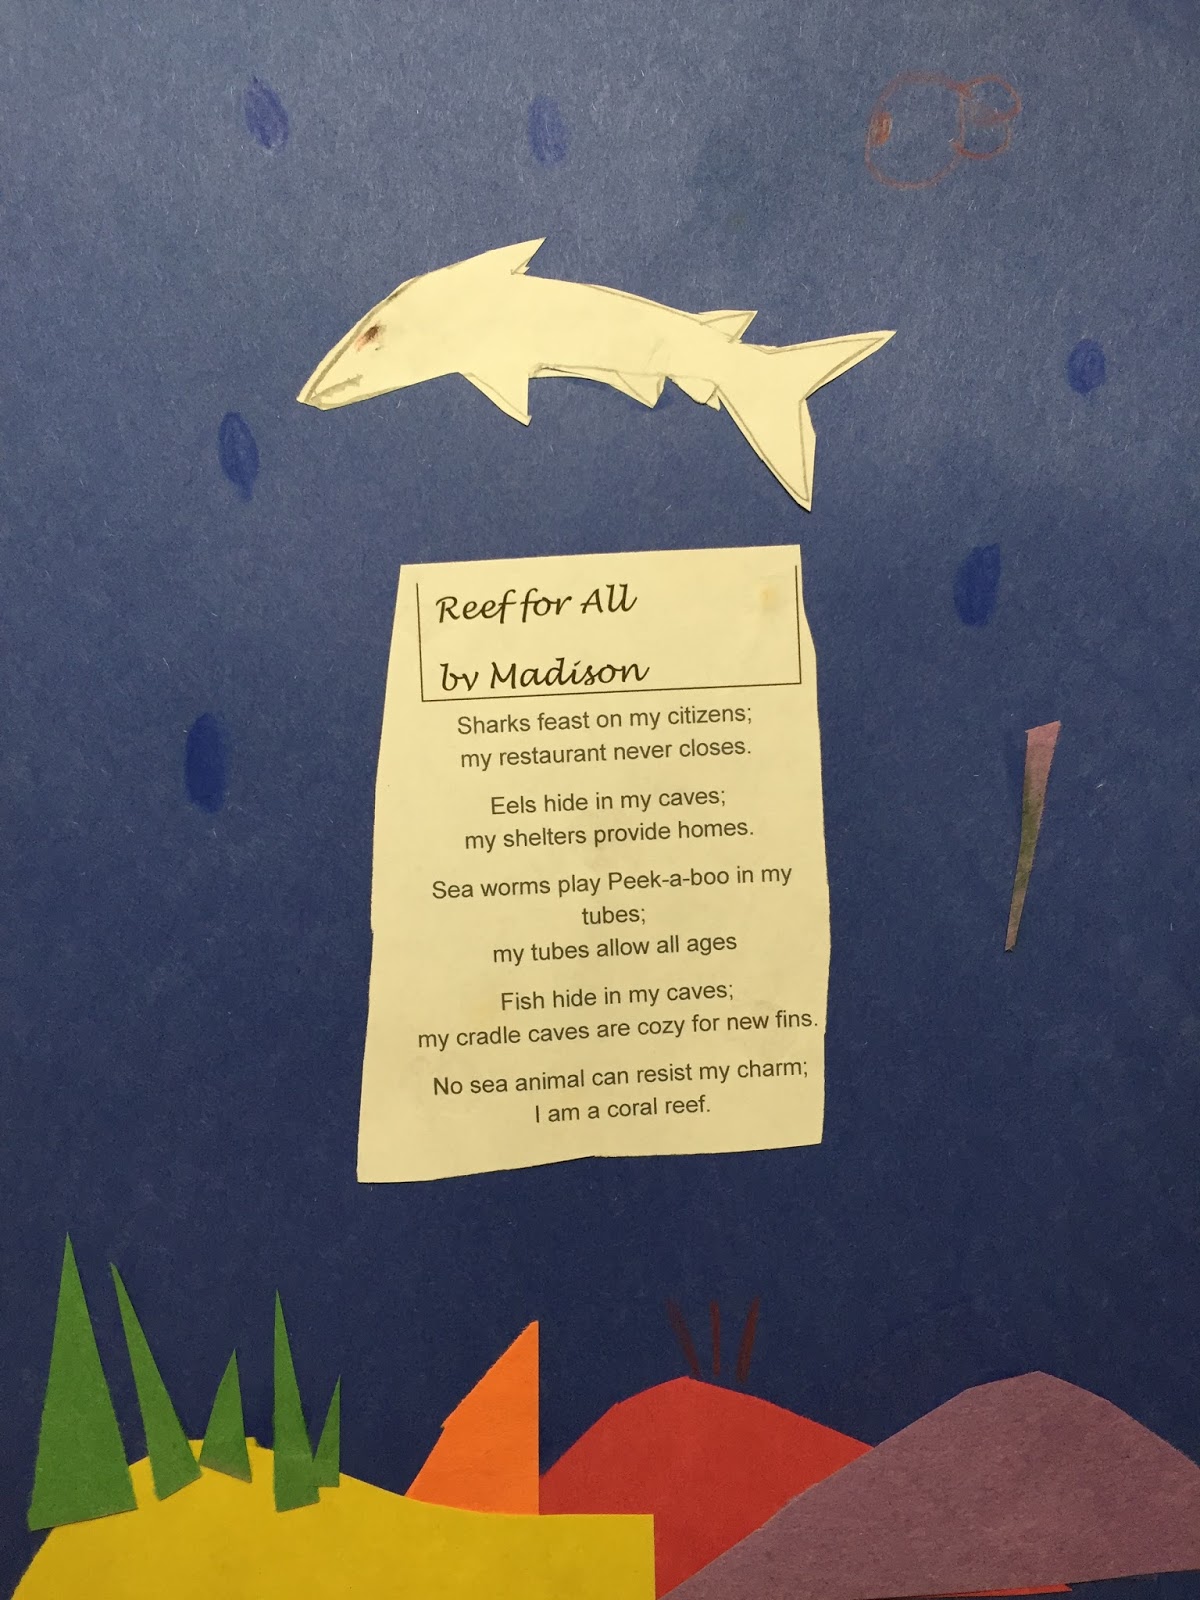 Reef for All
by Madison
Sharks feast on my citizens;
my restaurant never closes.
Eels hide in my caves;
my shelters provide homes.
Sea worms play Peek-a-boo in my
tubes;
my tubes allow all ages
Fish hide in my caves;
my cradle caves are cozy for new fins.
No sea animal can resist my charm;
I am a coral reef.